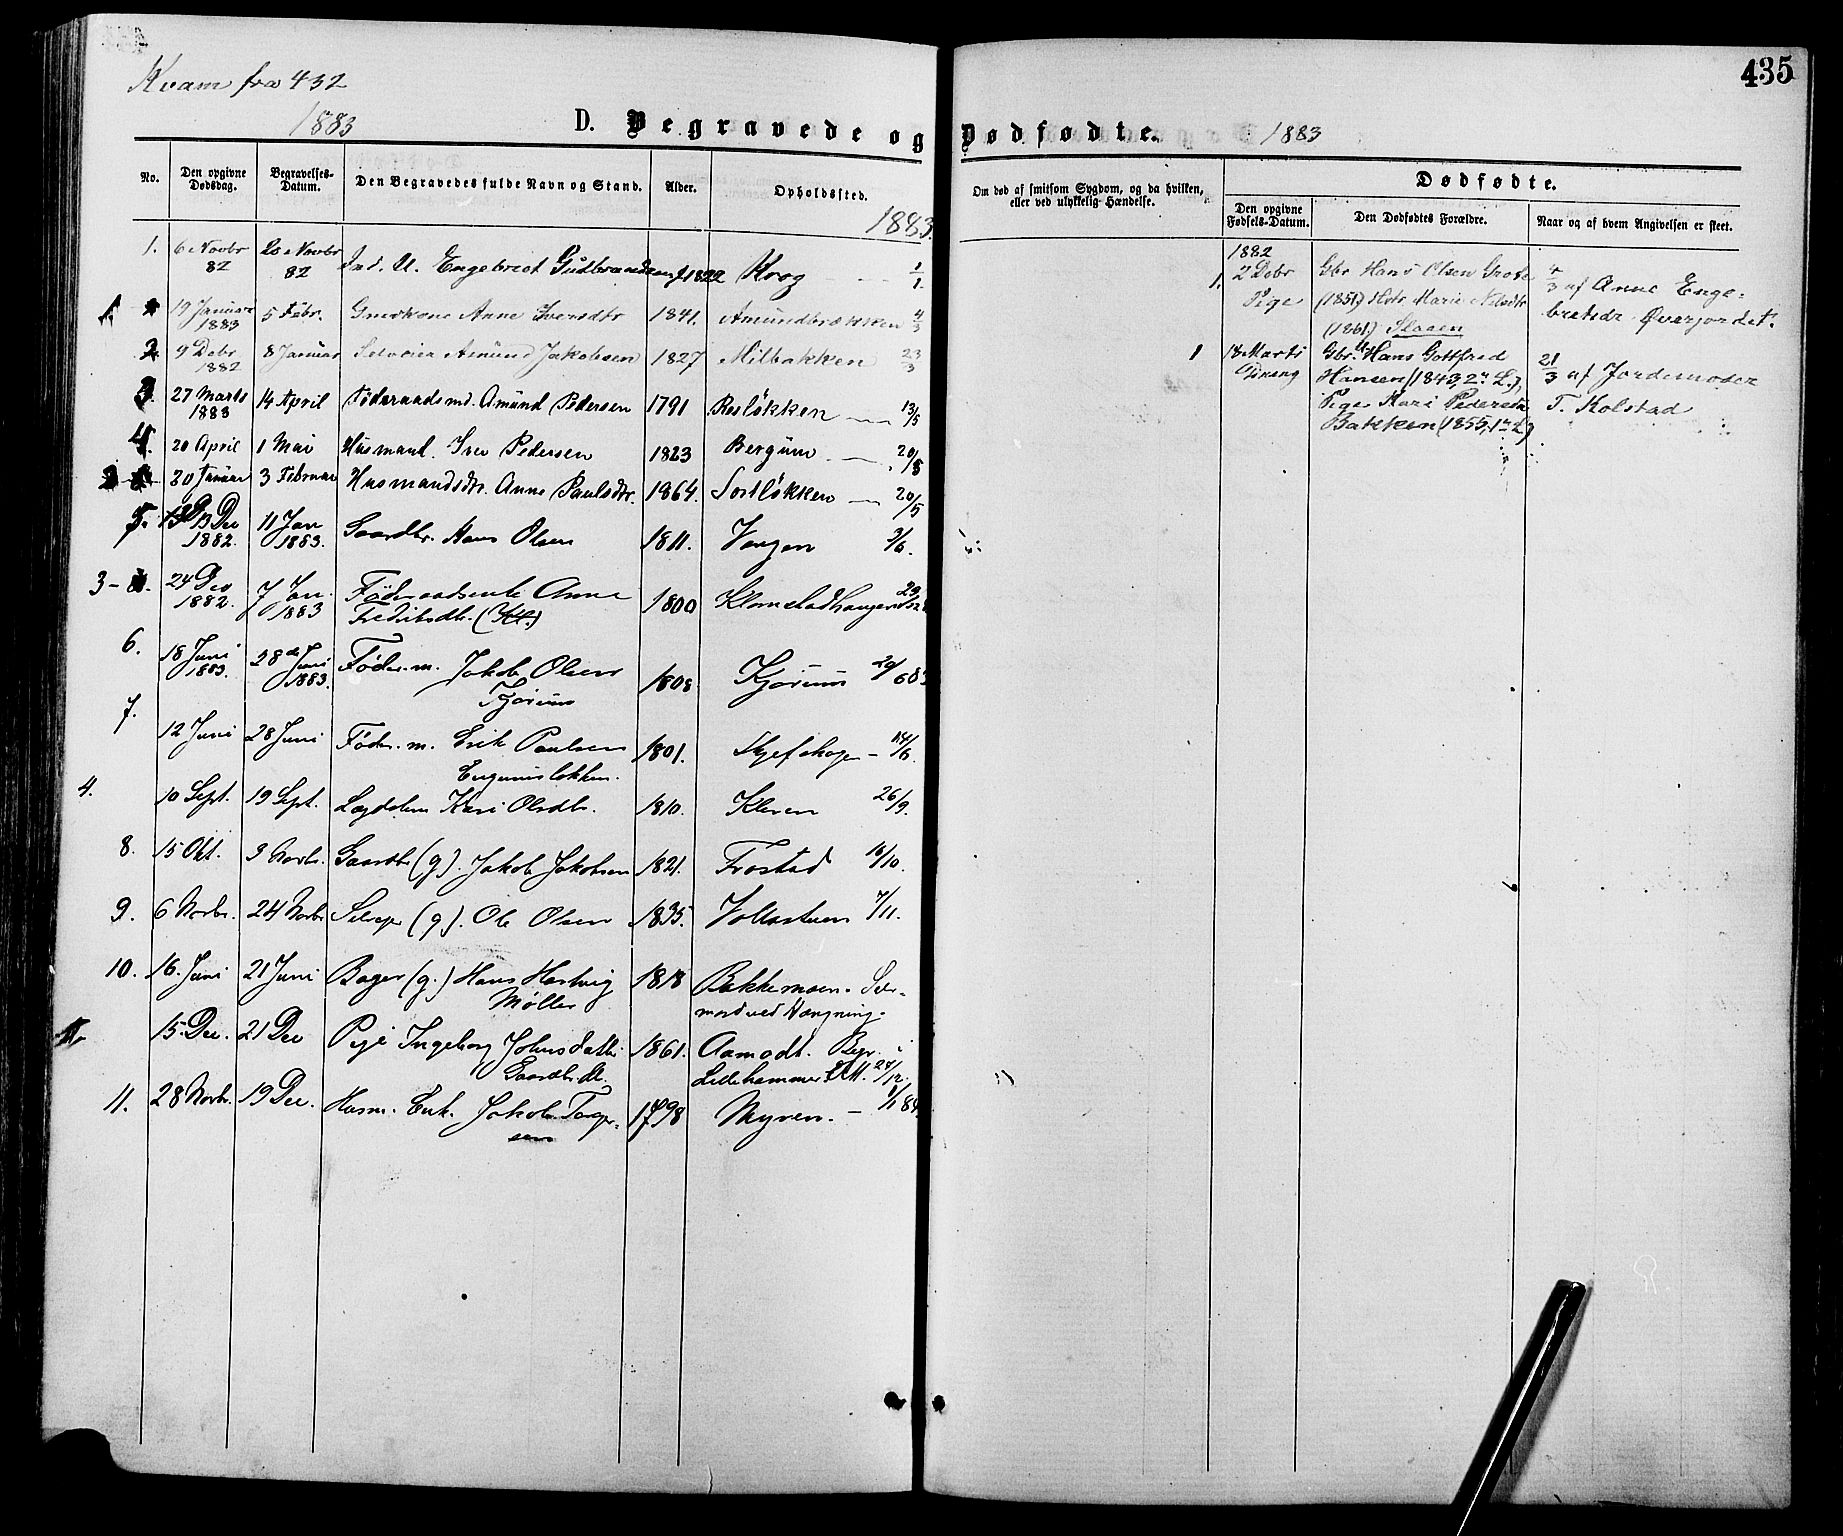 435
Kvam fra 432
1883
D. Begravede og Dødfødte.
1883
No.
Den opgivne Dødsdag.
Begravelses-Datum.
Den Begravedes fulde Navn og Stand.
Alder.
Opholdssted.
1883.
Om død af smitsom Sygdom, og da hvilken, eller ved ulykkelig Hændelse.
Dødfødte.
Den opgivne Fødsels-Datum.
Den Dødfødtes Forældre.
Naar og af hvem Angivelsen er skeet.
1. 6 Novbr 82 20 Novbr 82 Ind. U. Engebret Gudbrandsen 1822 Krog 1/1
1. 19 Januar 1883 5 Febr. Anne Iversdtr 1841. Amundbrækken 4/3
2 9 Debr 1882 8 Januar Selveier Amund Jakobsen 1827 Milbakken 23/3
3. 27 Marts 1883 14 April Føderaadsmd. Amund Pedersen 1791 Resløkken 13/5
4. 20 April 1 Mai Husmand. Iver Pedersen 1823 Bergum 20/5
2 20 Januar 3 Februar Husmandsdtr. Anne Paulsdtr. 1864. Sortløkken 20/5
5. 13 Dec 1882. 11 Jan 1883. Gaardbr. Hans Olsen 1811. Vargen 3/6.
3 - 24 Dec 1882. 7 Jan. 1883 Føderaadsenke Anne Fredriksdtr. 1800 Klomstadhaugen
6. 18 Juni 1883. 28de Juni 1883. Føder. m. Jakob Olsen Kjørum 1808 Kjørum 29/6 83
7. 12 Juni 28 Juni Føder. m. Erik Paulsen 1801. 14/6.
4. 10 Sept. 19 Sept. Lægdslem Kari Olsdtr. 1810. Kleven 26/9.
8. 15 Okt. 3 Novbr. Gaardb (g). Jakob Jakobsen 1821. Frostad 16/10.
9. 6 Novbr. 24 Novbr Selvejer (g). Ole Olsen 1835. Volkestuen 7/11.
10. 16. Juni 21 Juni Bager (g.) Hans Hartvig Møller 1818 Bakkemoen. Selv-
mord ved Hængning.
15. Dec. 21 Dec Pige Ingeborg Johnsdatter Gaardbr. D. 1861. Aamodt. Begr.
Lillehammer 24/12.
11. 28 Novbr. 19 Dec. Husm. Enk. Jakob Torger-
sen 1798 Myren. — 84
1882
1. 2 Debr Pige
Gbr Hans Olsen Grote
(1851) Hstr. Marie Nilsdtr
(1861.) Slaaen
4/3 af Anne Enge-
bretsdr Øverjordet.
1 18 Marts Dreng
Gbr. U. Hans Gottfred
Hansen (1843, 2n L.),
Pige Kari Pedersdtr
Bakken (1855, 1n L)
21/3 af Jordemoder
T. Kolstad